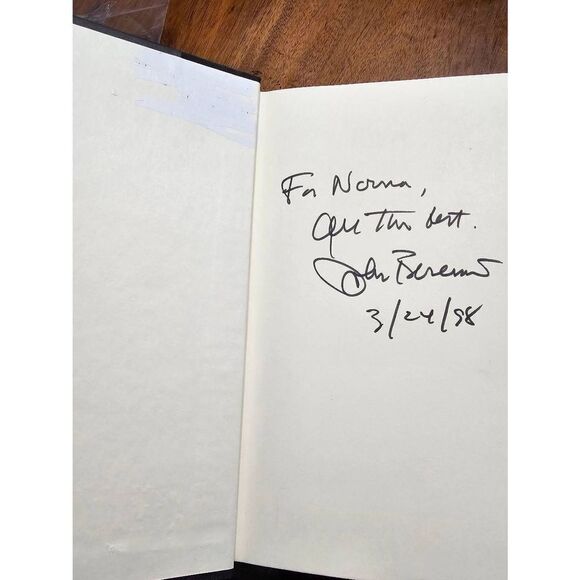 For Norma,
All the best.
John Berendt
3/24/98